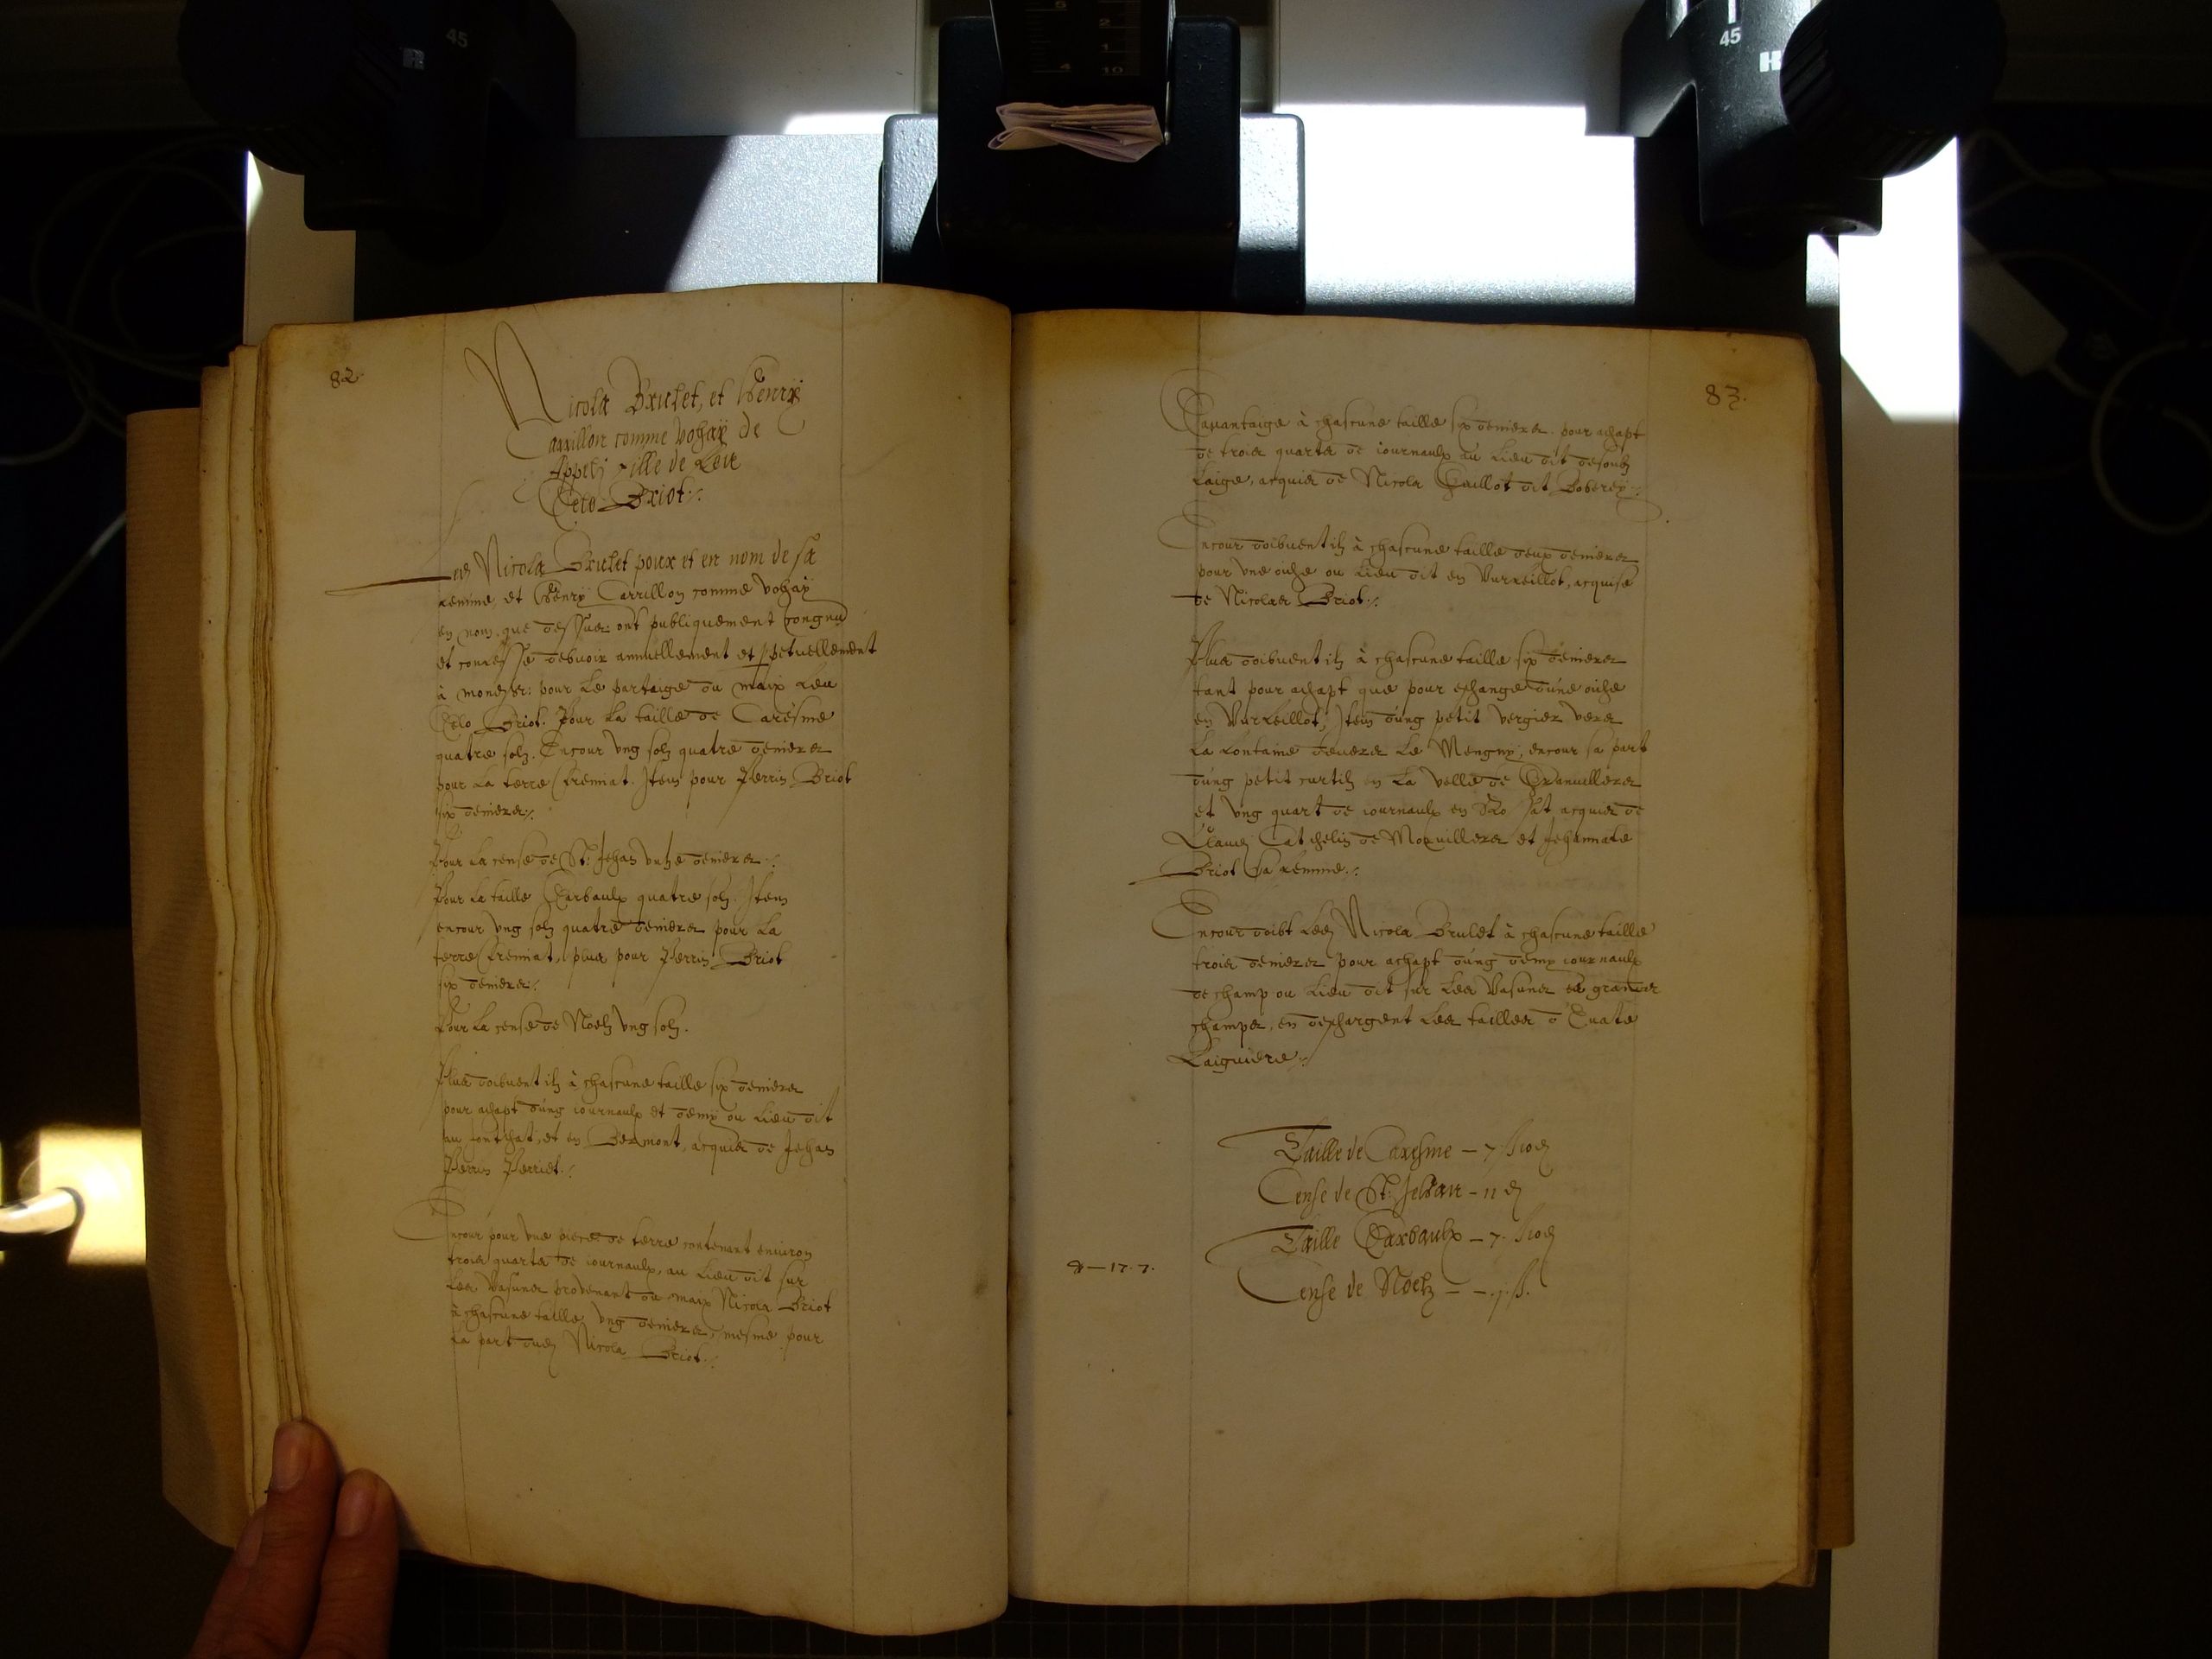 82.
Nicola Brulet, et Henry
Carrillon comme voҺay de
fille de feu
Briot.
Led Nicola Brulet pour et en nom de sa
femme, et Henry Carrillon comme vohay
en nom que dessus: ont publiquement congnu
et confessé debvoir annuellement et ppetuellement
à monsr: pour le partaige du maix feu
Briot. Pour la taille de Caresme
quatre solz. Encour ung solz quatre deniers
pour la terre Item pour Perrin Briot
six deniers.
Pour la cense de St: Jehan unze deniers.
Pour la taille quatre solz. Item
encour ung solz quatre deniers pour la
terre plus pour Perrin Briot
six deniers.
Pour la cense de Noelz ung solz.
Plus doibvent ilz à chascune taille six deniers
pour achapt d'ung iournaulx et demy ou lieu dit
et en acquis de Jehan
Perrin Perriet.
Encour pour une piece de terre contenant environ
trois quarts de iournaulx, au lieu dit sur
les Vasunes provenant du maix Nicola Briot
à chascune taille ung deniers, mesme pour
la part dud Nicola Briot.
83.
Davantaige à chascune taille six deniers pour achapt
de trois quarts de iournaulx au lieu dit desoubz
acquis de Nicola dit
Encour doibvent ilz à chascune taille deux deniers
pour une ou lieu dit en Vurseillot, acquise
de Nicolas Briot.
Plus doibvent ilz à chascune taille six deniers
tant pour achapt que pour eschange d'une
en Vurseillot, Item d'ung petit vergier vers
la fontaine devers le encour sa part
d'ung petit curtilz en la velle de
et ung quart de iournaulx en acquis de
de et
Briot sa femme.
Encour doibt led Nicola Brulet à chascune taille
trois deniers pour achapt d'ung demy iournaulx
de champ ou lieu dit sur les Vasunes es grandes
champs, en deschargent les tailles
Taille de Caresme — 7. s 10 d
Cense de St: Jehan - 11 d
Taille — 7. s 10 d
Cense de Noelz — — .j. s.
17. 7.